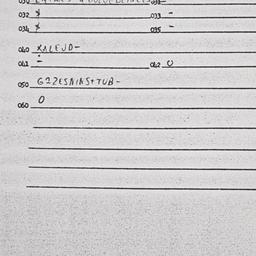 032 * 033 -
034 * 035 -
040 XALEJD-
041 - 042 0
050 G22ESNINS+TUB-
060 0